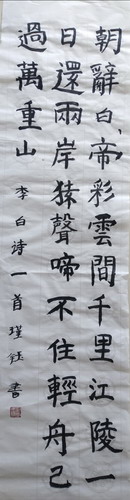 朝辭白帝彩雲間千里江陵一
日還兩岸猿聲啼不住輕舟已
過萬重山 李白诗一首 瑾钰書